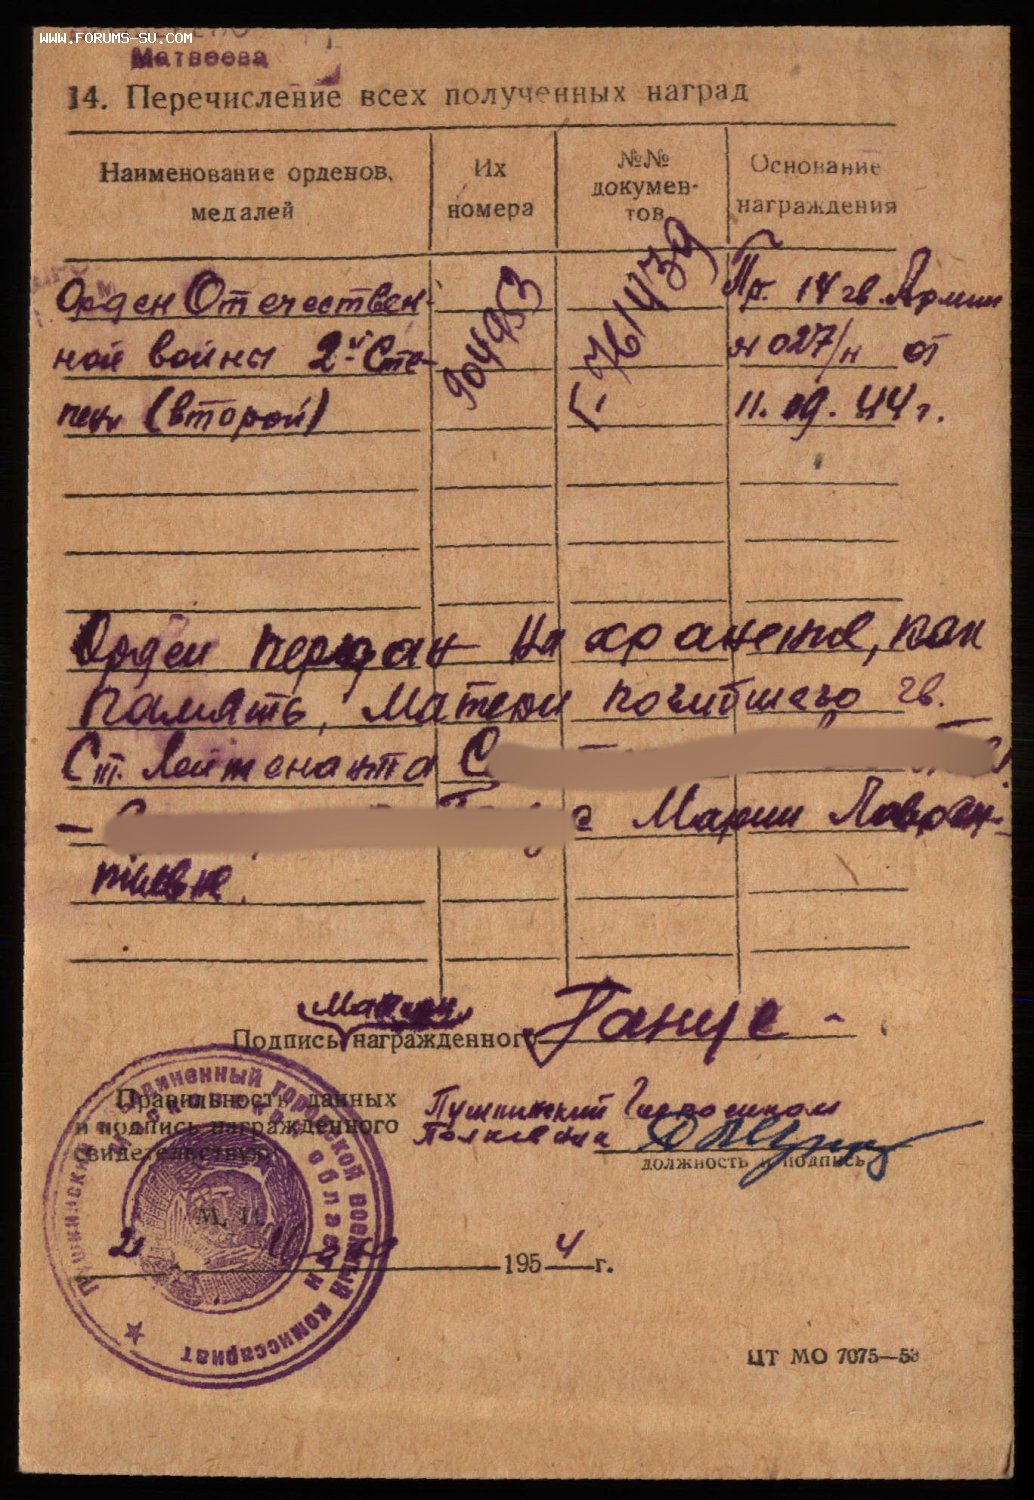 www.forums-su.com
Матвеева
14. Перечисление всех полученных наград
Наименование орденов, медалей
Их номера
№№ докумен-тов
Основание награждения
Орден Отечествен-
ной войны 2й Сте-
пени (второй)
904953
Г-761439
Пр. 14 гв. Армии
№ 027/н от
11.09.44 г.
Орден передан на хранение, как
память, Матери погибшего гв.
Ст. Лейтенанта С
– Марии Лаврен-
тиевне.
Матери
Подпись награжденного
Ганус -
Правильность данных
и подпись награжденного
свидетельствую
Пушкинский Горвоенком
Полковник
должность и подпись
М. П.
21 1954 г.
Пушкинский объединенный городской военный комиссариат
Московской области
ЦТ МО 7075—53